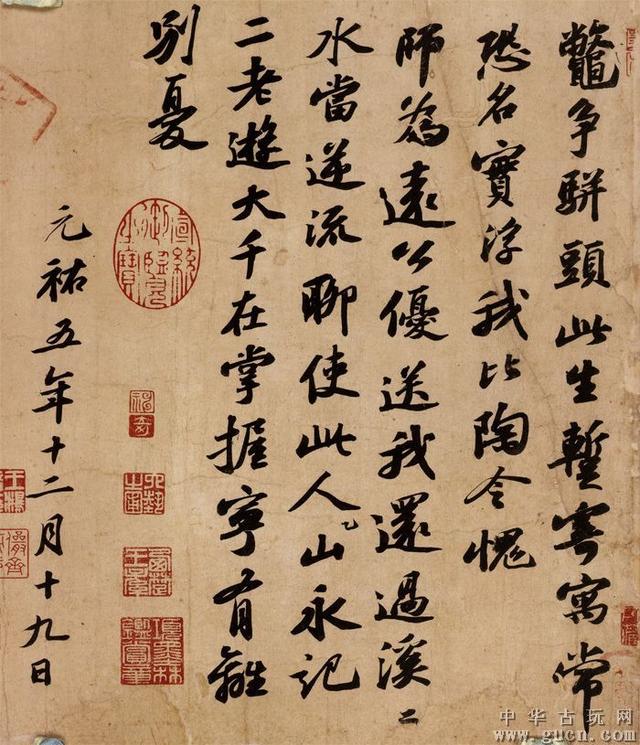 鼇争駢頭此生蹔寄寓常
恐名實浮我比陶令愧
師為遠公優送我還過溪二
水當逆流聊使此人山永記
二老遊大千在掌握寧有離
别憂
元祐五年十二月十九日
項墨林鑑賞章
中华古玩网
www.gucn.com